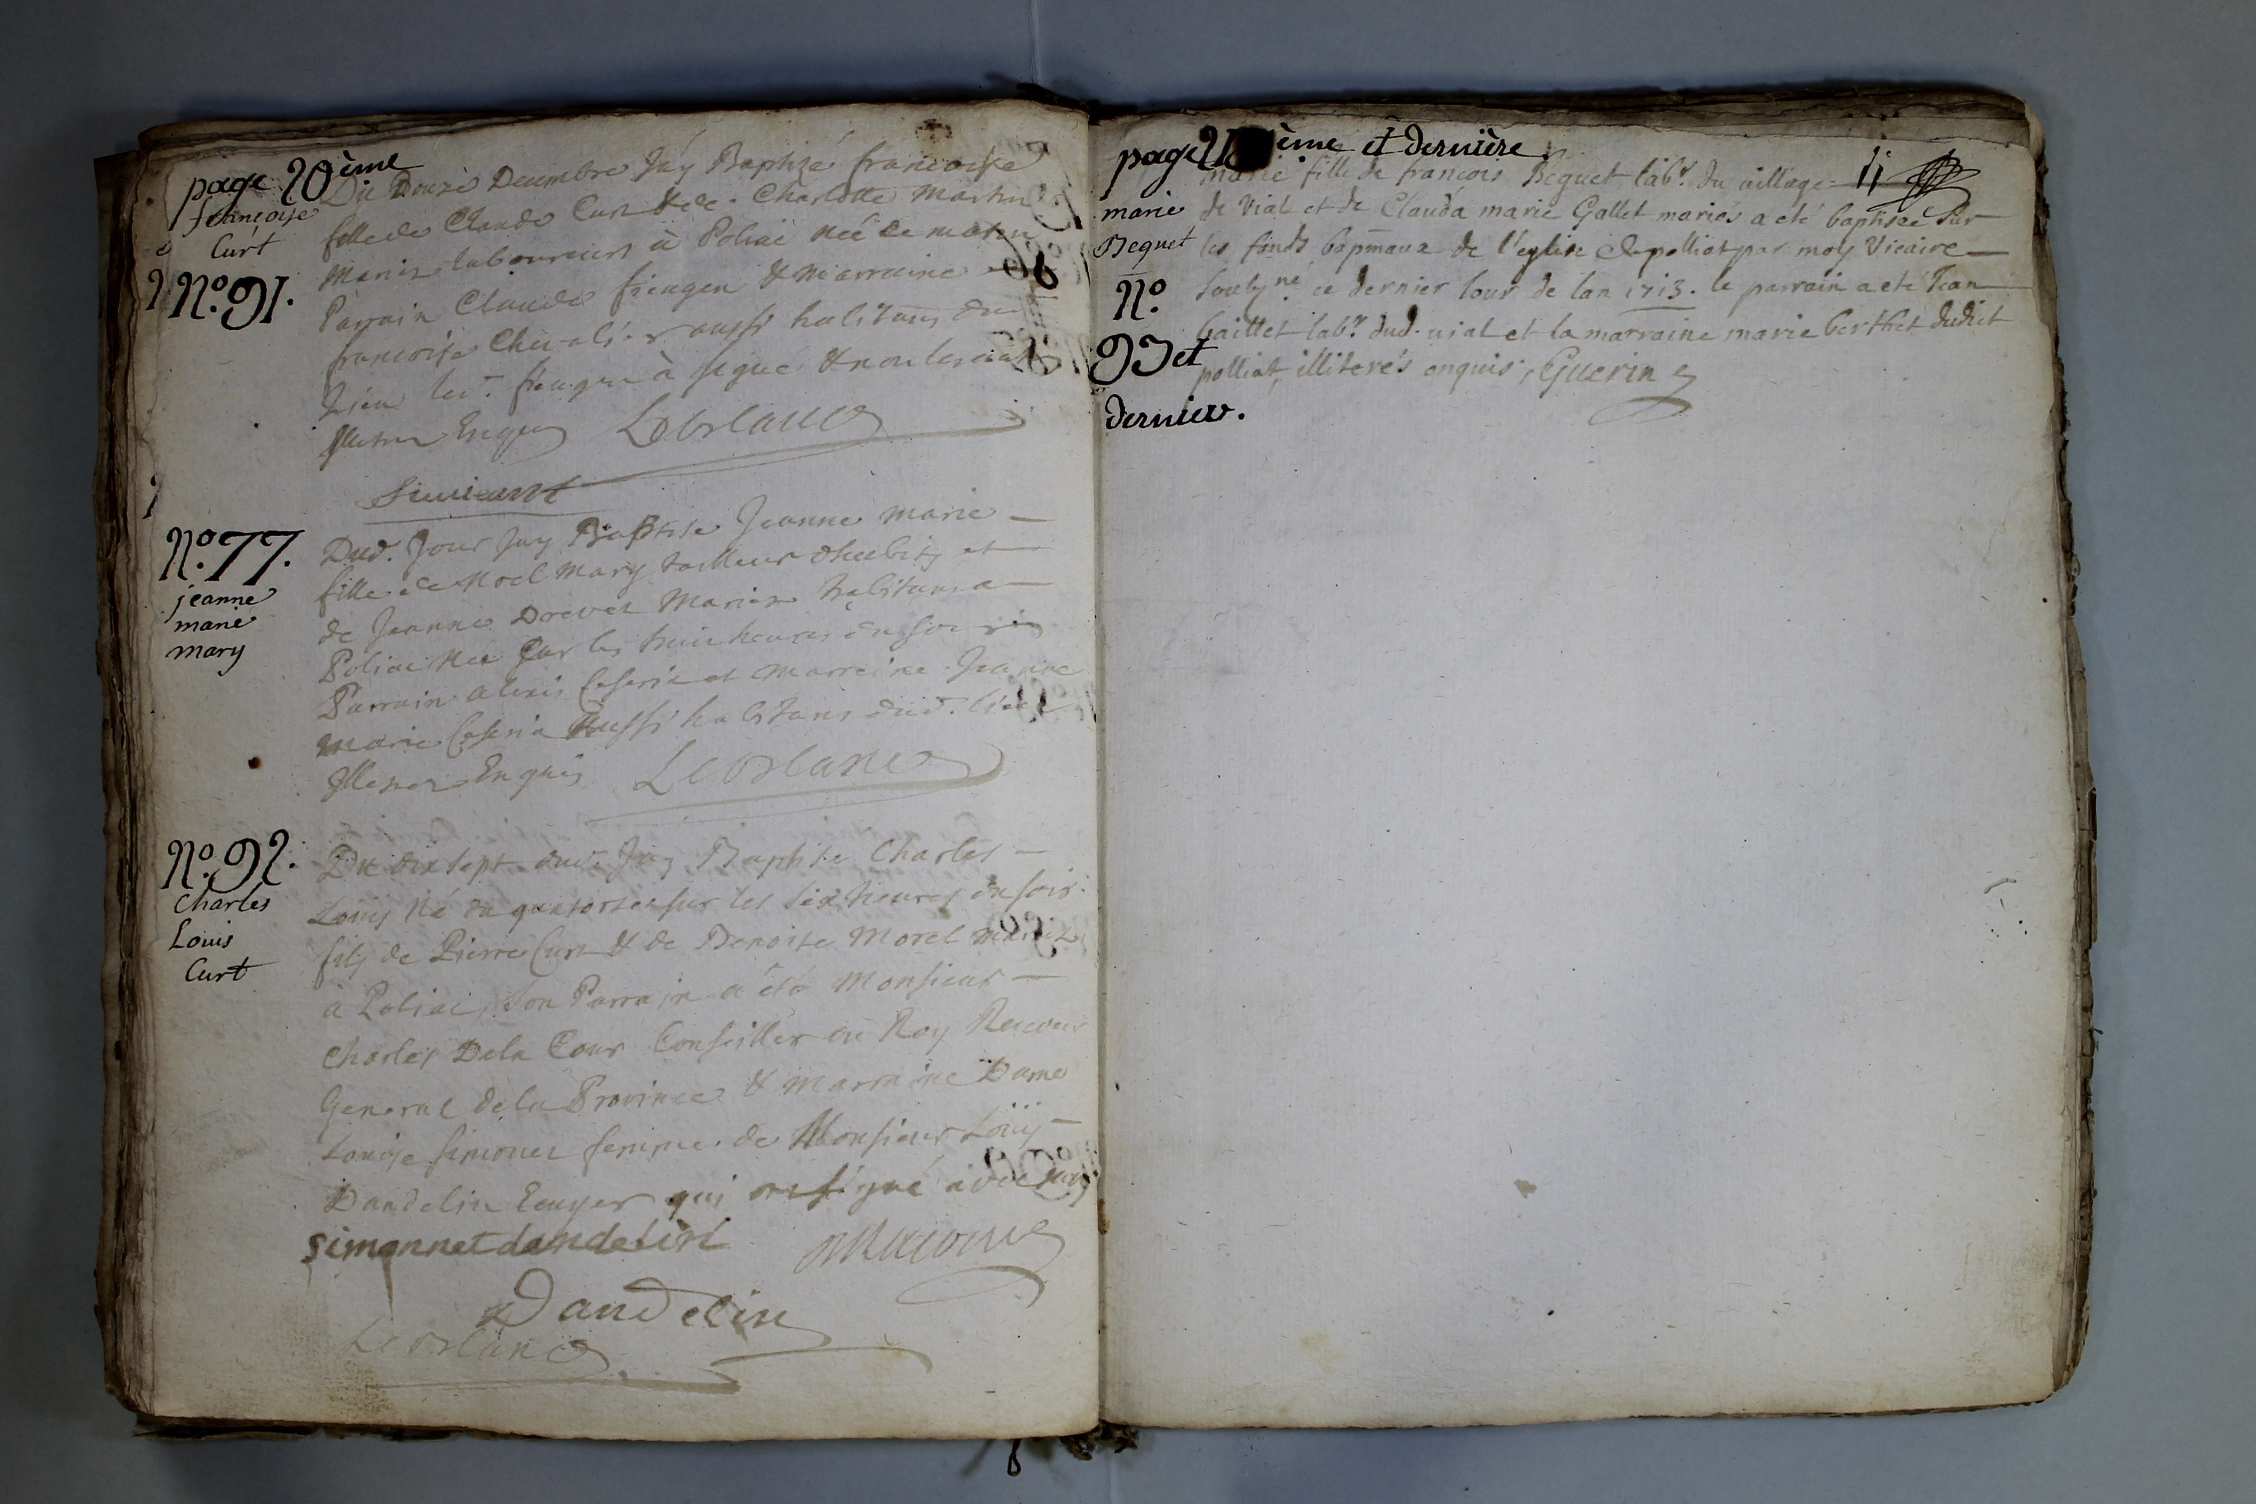 page 20ème
françoise
Curt
N.º 91.
Du Douze Decembre Jay Baptizé francoise
fille de Claude Curt & de Charlotte Martin
Mariez laboureurs à Poliac née ce matin
Parrain Claude & Marraine
francoise Chevalier aussi habitans du
Lieu led. à signé & non les autres
Illiterez Enquis LeBlanc
N.º 77.
jeanne
marie
mary
Dud. Jour Jay Baptisé Jeanne Marie
fille de Noel Mary tailleur dhabits et
de Jeanne Drevet Mariez habitans a
Poliac Née sur les huit heures du soir
Parrain Alexis et Marreine Jeanne
Marie aussi habitans dud. lieu
Illiterez Enquis LeBlanc
N.º 92.
Charles
Louis
Curt
Du dix sept dud. Jay Baptisé Charles
Louis Né du quatorze sur les six heures du soir
fils de Pierre Curt & de Benoite Morel Mariez
à Poliac, son Parrain a été Monsieur
Charles Dela Cour Conseiller du Roy Receveur
General dela Province & Marraine Dame
Louise Simonet femme de Monsieur Louis
Dandelin Ecuyer qui ont signé avec nous
simonnet dandelin
Dandelin
LeBlanc
page ème et dernière
11
marie
Bequet
N.º
93 et
dernier.
marie fille de francois Bequet lab.r du village
de Vial et de Clauda marie Gallet mariés a eté baptisée sur
les fonds bapmaux de l'eglise de polliat par moy Vicaire
soubsné ce dernier Iour de lan 1713. le parrain a eté Iean
Gaillet lab.r dud. vial et la marraine marie berthet dudict
polliat, illiterés enquis, Guerin